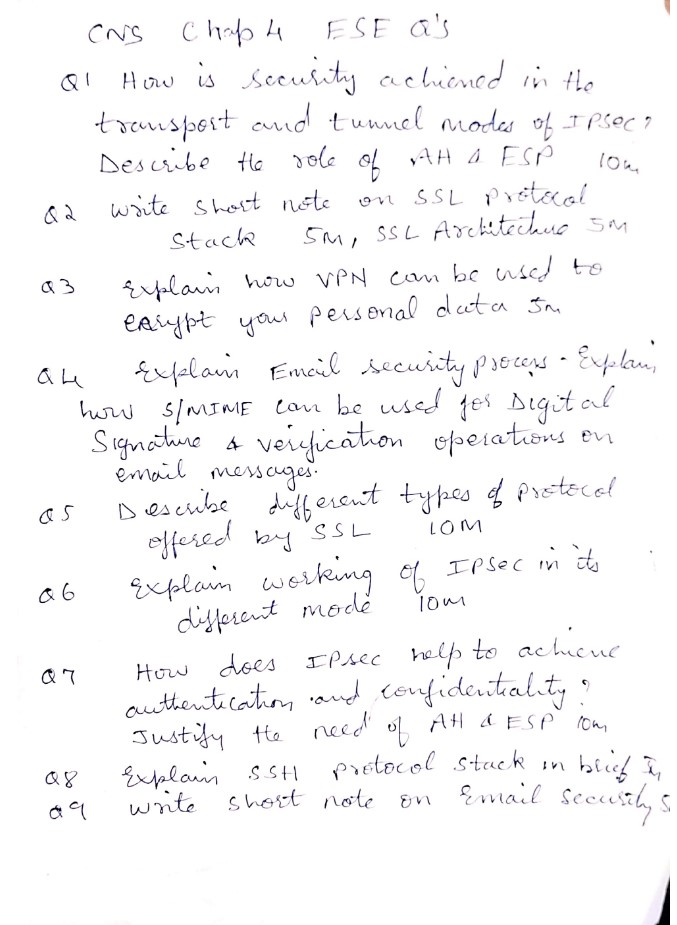 CNS Chap 4 ESE Q's
Q1 How is security achieved in the
transport and tunnel modes of IPsec?
Describe the role of AH & ESP 10m
Q2 write short note on SSL protocol
Stack 5M, SSL Architecture 5M
Q3 Explain how VPN can be used to
encrypt your personal data 5m
Q4 Explain Email security process - Explain,
how S/MIME can be used for Digital
Signature & verification operations on
email messages.
Q5 Describe different types of protocol
offered by SSL 10M
Q6 Explain working of IPsec in its
different mode 10m
Q7 How does IPsec help to achieve
authentication and confidentiality?
Justify the need of AH & ESP 10m
Q8 Explain SSH protocol stack in brief 5m
Q9 write short note on Email security 5